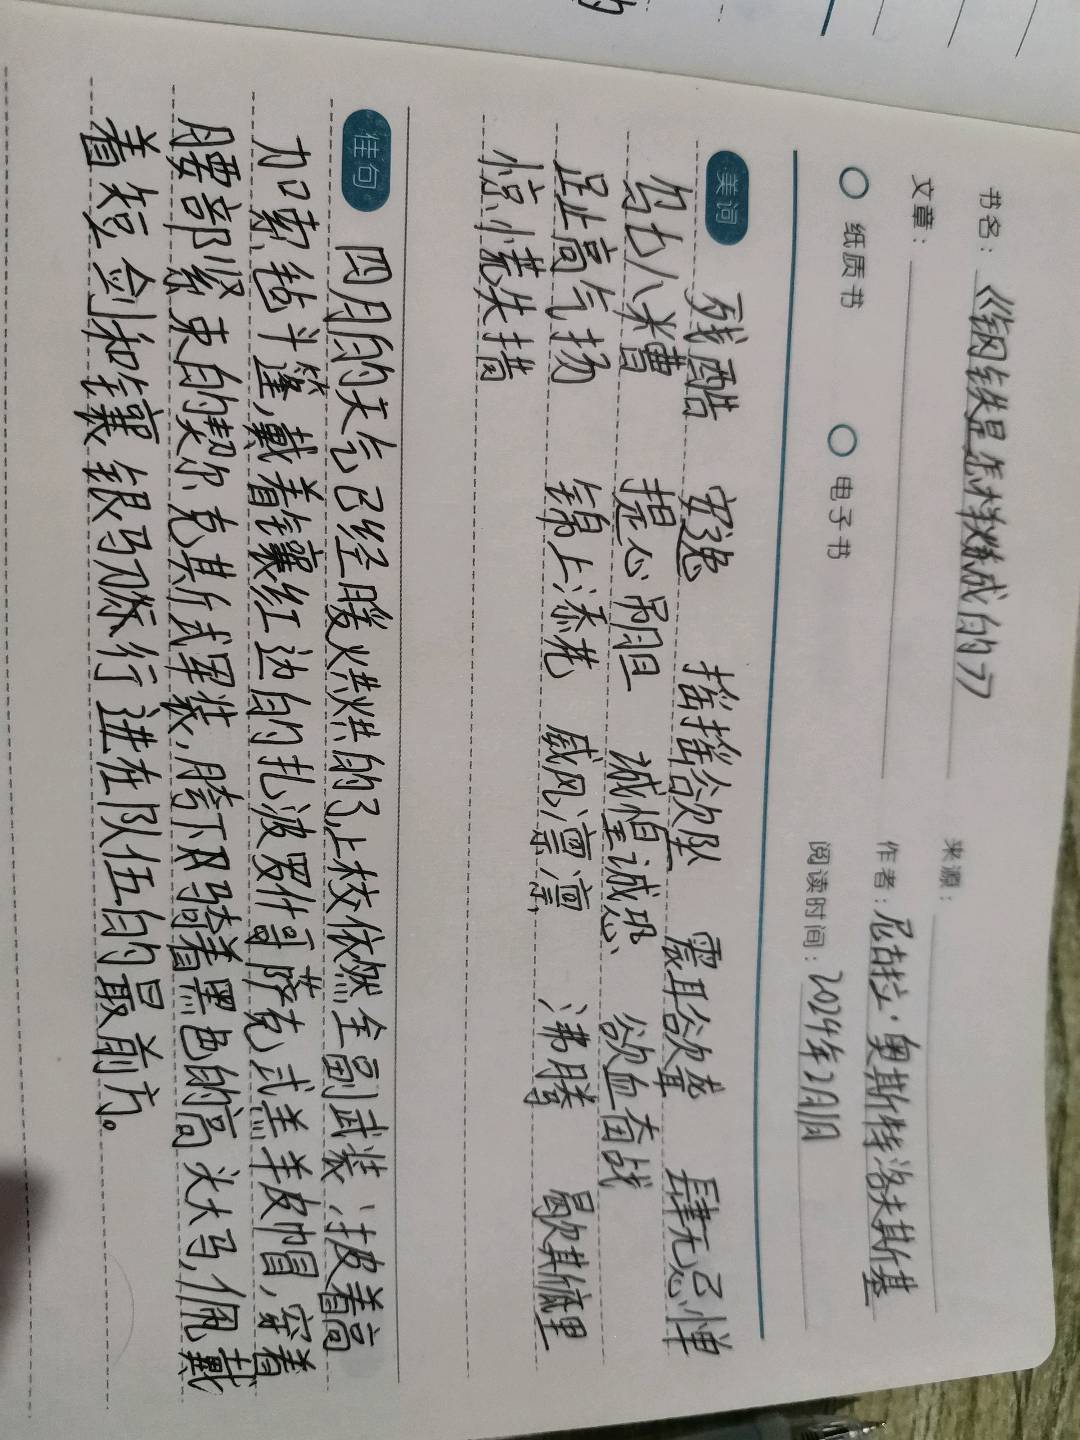 书名：《钢铁是怎样炼成的》
来源：
文章：
作者：尼古拉·奥斯特洛夫斯基
纸质书 电子书
阅读时间：2024年2月1日
美词 残酷 安逸 摇摇欲坠 震耳欲聋 肆无忌惮
乌七八糟 提心吊胆 诚惶诚恐 欲血奋战
趾高气扬 锦上添花 威风凛凛 沸腾 歇斯底里
惊慌失措
佳句 四月的天气已经暖烘烘的了，上校依然全副武装，披着高
加索毡斗篷，戴着镶红边的扎波罗什哥萨克式羔羊皮帽，穿着
腰部紧束的契尔克斯式军装，胯下骑着黑色的高头大马，佩戴
着短剑和镶银马刀，行进在队伍的最前方。